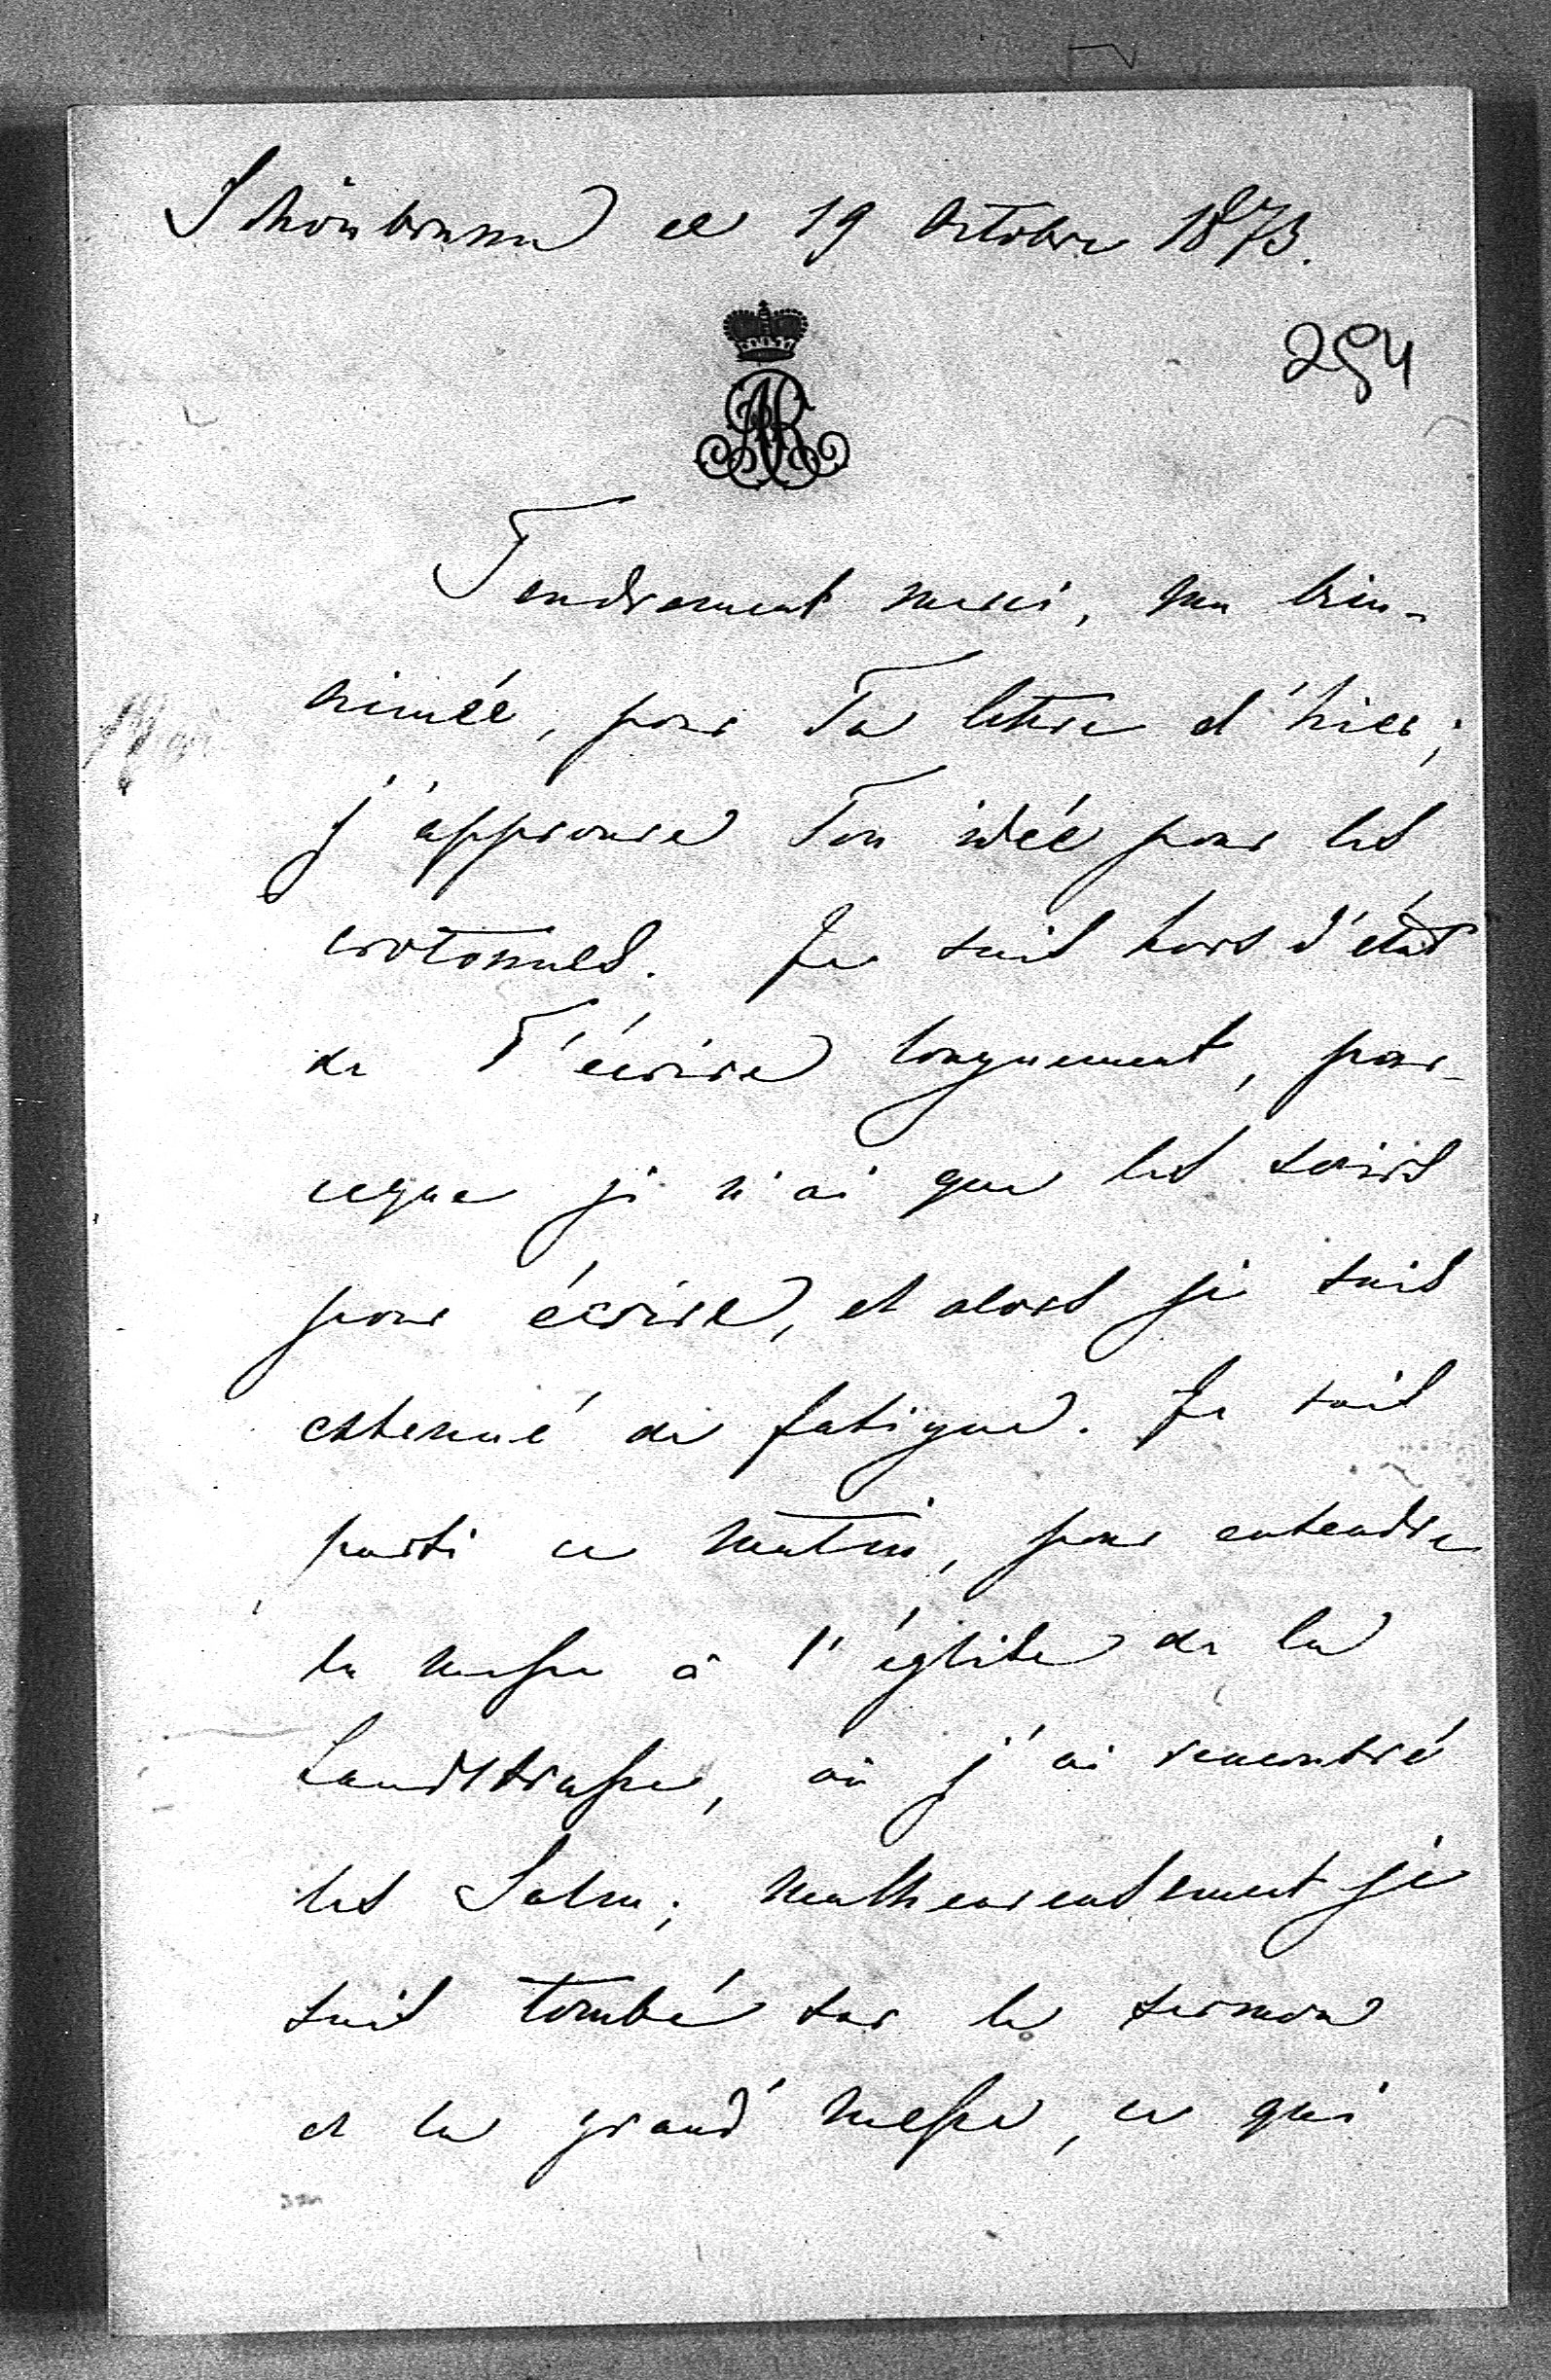 Schönbrunn ce 19 Octobre 1873.
284
Tendrement merci, ma bien-
aimée, pour Ta lettre d'hier;
j'approuve Ton idée pour les
crotonnes. Je suis hors d'état
de T'écrire longuement, par-
ceque je n'ai que les soirs
pour écrire, et alors je suis
extenué de fatigue. Je suis
parti ce matin, pour entendre
la messe à l'église de la
Landstrasse, où j'ai rencontré
les Salm; malheureusement je
suis tombé sur le sermon
et la grand' messe, ce qui